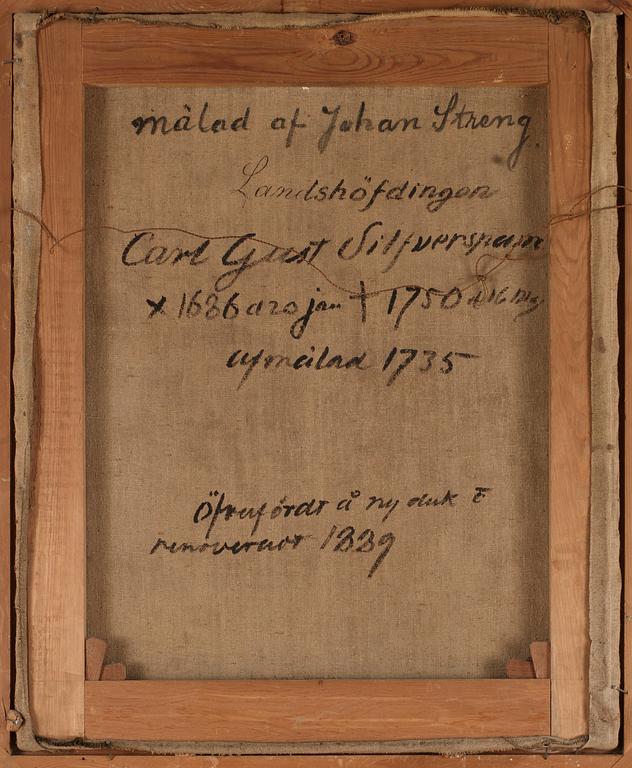 målad af Johan Streng.
Landshöfdingen
Carl Gust Silfverspam
x 1686 d 20 jan † 1750 d 16
afmålad 1735
Öfverfördt å ny duk
renoveradt 1889